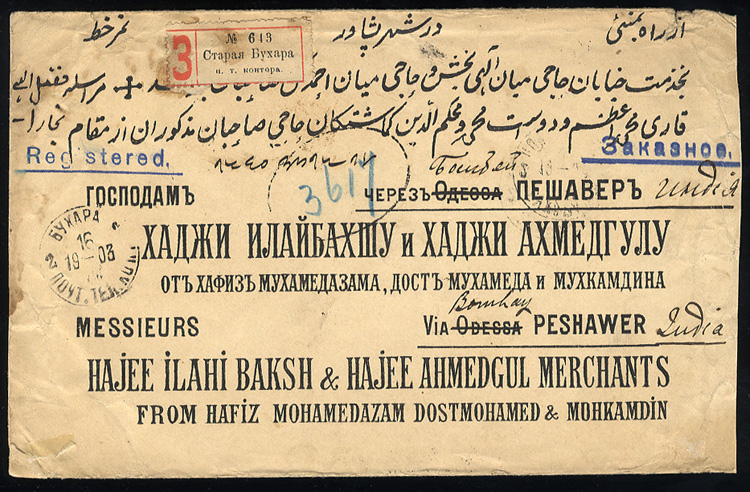 از راه بمبئی در شهر پشاور نمرخط
№ 643
З Старая Бухара
п. т. контора.
بخدمت خبابان حاجی میان آلهی بخش و حاجی میان احمد
قاری محمد اعظم و دوست محمد و محکم الدین گماشتگان حاجی صاحبان مذکوران از مقام بخارا
Registered.
Заказное.
3617
Бомбей
ГОСПОДАМЪ
ЧЕРЕЗЪ ОДЕССА ПЕШАВЕРЪ Индія
БУХАРА
16
19-03
ПОЧТ. ТЕЛ.
ХАДЖИ ИЛАЙБАХШУ и ХАДЖИ АХМЕДГУЛУ
ОТЪ ХАФИЗ МУХАМЕДАЗАМА, ДОСТЪ МУХАМЕДА и МУХКАМДИНА
Bombay
MESSIEURS
VIA ODESSA PESHAWER India
HAJEE İLAHI BAKSH & HAJEE AHMEDGUL MERCHANTS
FROM HAFIZ MOHAMEDAZAM DOSTMOHAMED & MOHKAMDIN